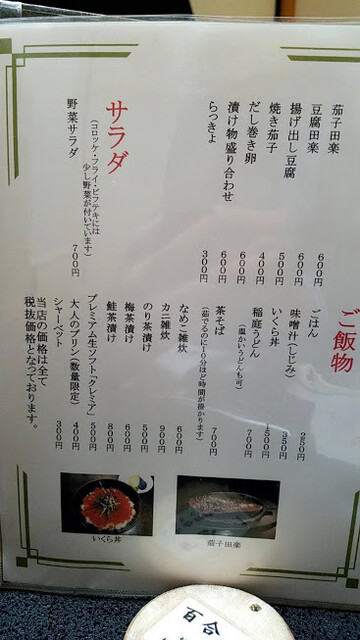 茄子田楽 600円
豆腐田楽 600円
揚げ出し豆腐 500円
焼き茄子 400円
だし巻き卵 600円
漬け物盛り合わせ 600円
らっきょ 300円
サラダ
(コロッケ・フライ・ビフテキには
少し野菜が付いています)
野菜サラダ 700円
ご飯物
ごはん 250円
味噌汁(しじみ) 350円
いくら丼 1500円
稲庭うどん 700円
(温かいうどんも可)
茶そば 700円
(茹でるのに10分ほど時間が掛かります)
なめこ雑炊 600円
カニ雑炊 900円
のり茶漬け 500円
梅茶漬け 600円
鮭茶漬け 800円
プレミアム生ソフト「クレミア」 500円
大人のプリン(数量限定) 400円
シャーベット 300円
当店の価格は全て
税抜価格となっております。
いくら丼
茄子田楽
百合